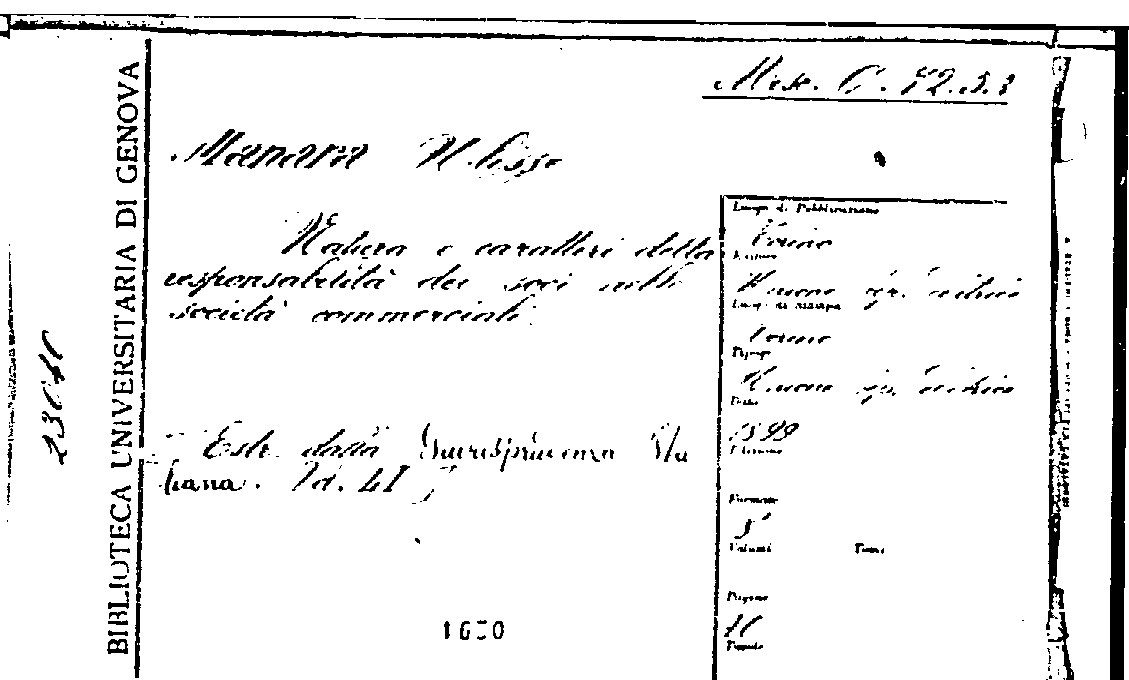 Misc. C. 72.5.3
Manara Ulisse
Natura e caratteri della
responsabilità dei soci nelle
società commerciali.
Estr. dalla Giurisprudenza Ita
liana. Vol. LI
Luogo di Pubblicazione
Torino
Editore
Unione tip. editrice
Luogo di stampa
Torino
Tipogr.
Unione tip. editrice
Data
1899
Edizione
Formato
8°
Volumi Tomi
Pagine
BIBLIOTECA UNIVERSITARIA DI GENOVA